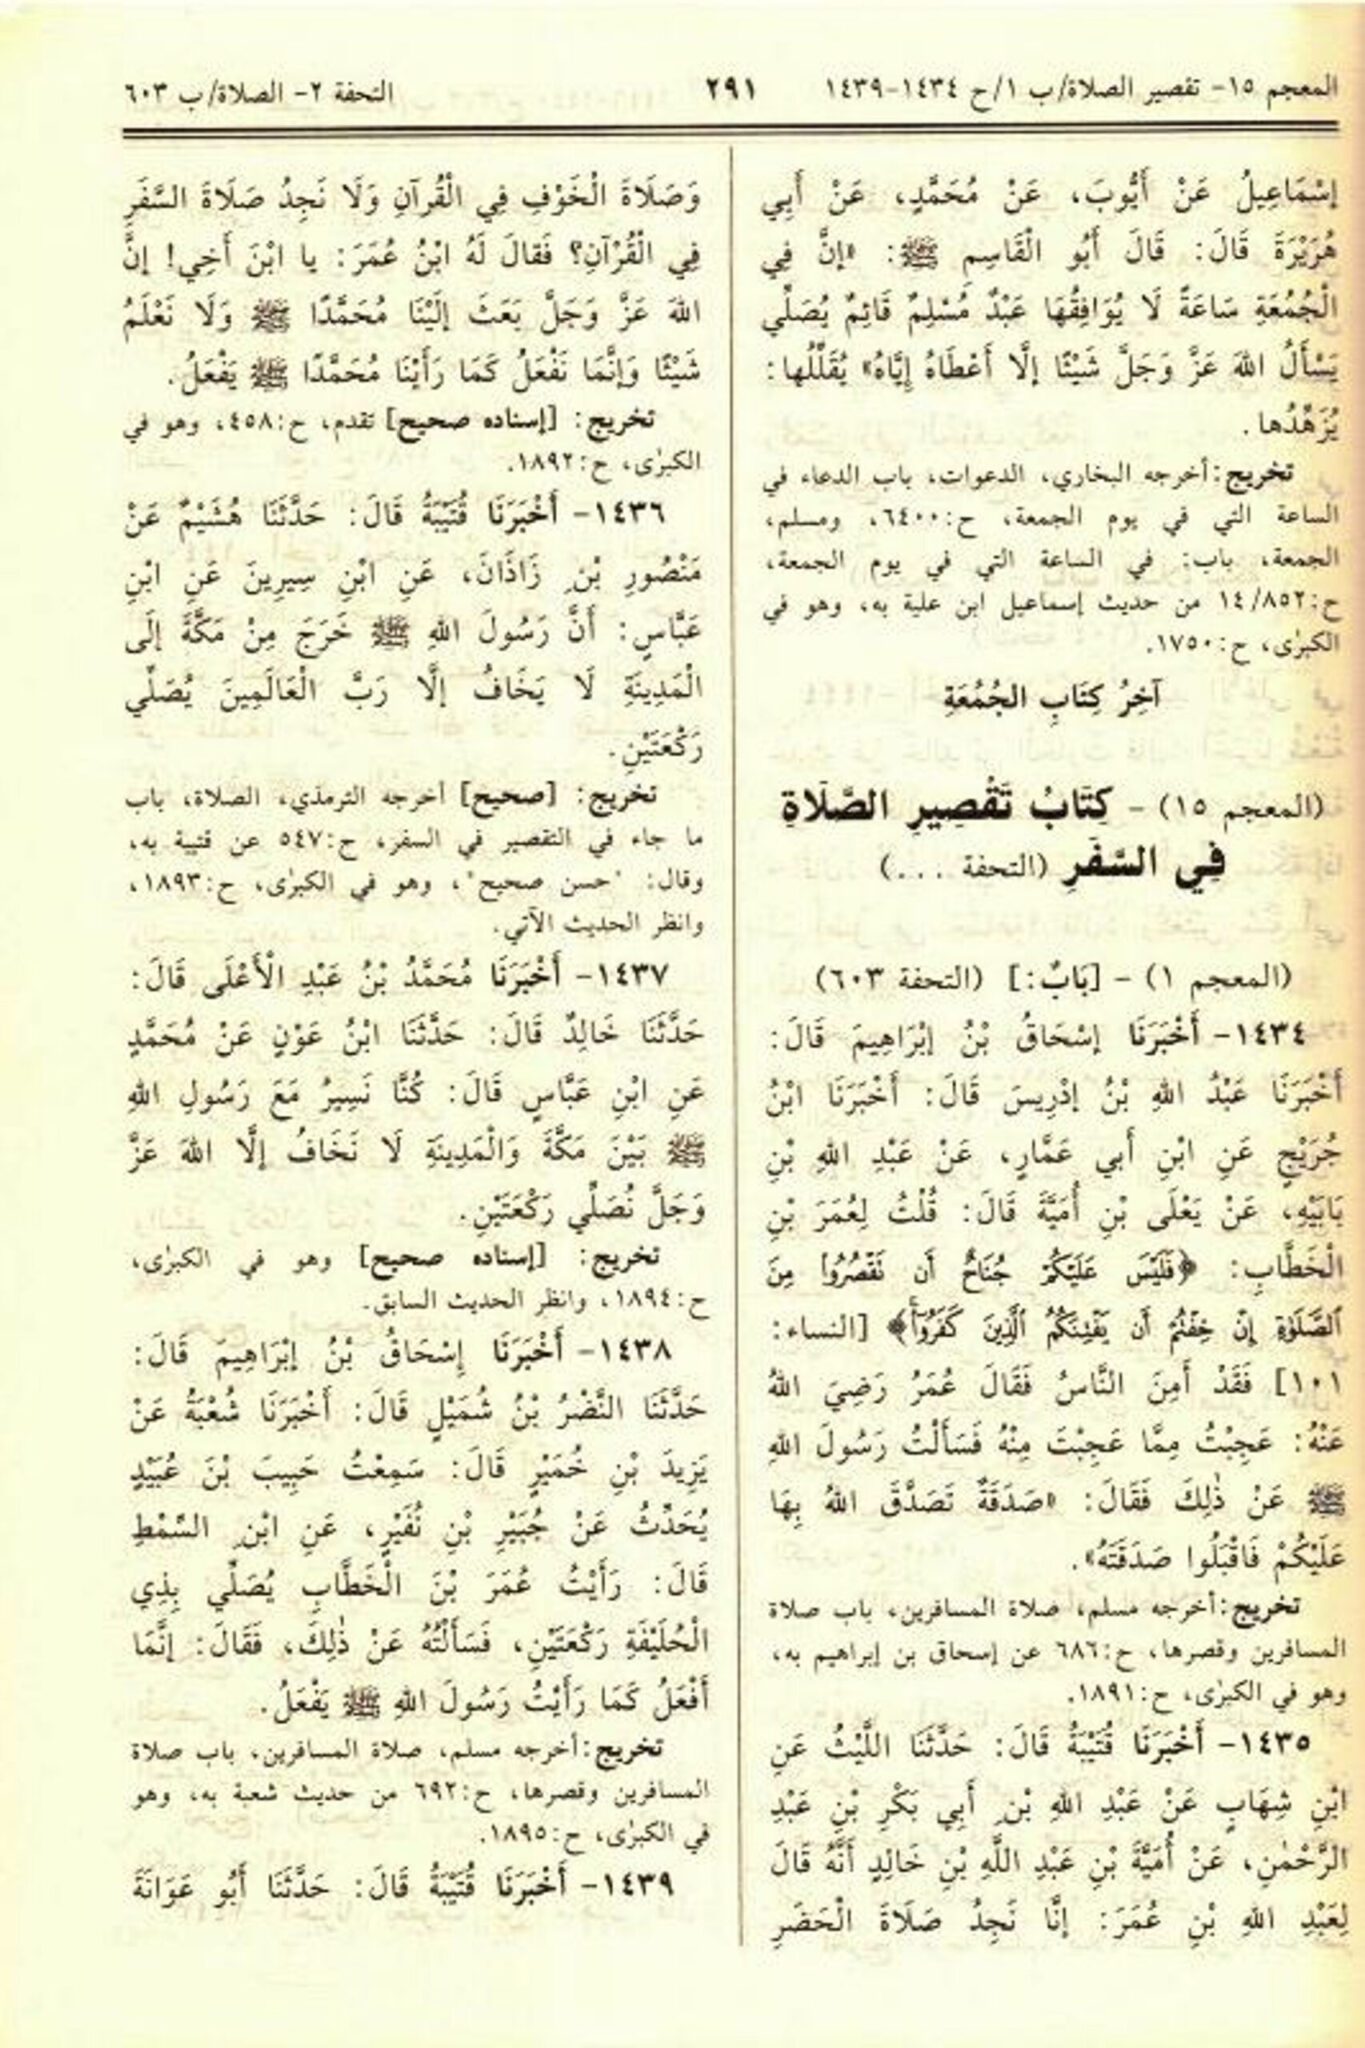 المعجم ١٥- تقصير الصلاة/ ب ١/ ح ١٤٣٤-١٤٣٩
٢٩١
التحفة ٢- الصلاة/ ب ٦٠٣
إِسْمَاعِيلُ عَنْ أَيُّوبَ، عَنْ مُحَمَّدٍ، عَنْ أَبِي
هُرَيْرَةَ قَالَ: قَالَ أَبُو الْقَاسِمِ ﷺ: «إنَّ فِي
الْجُمُعَةِ سَاعَةً لَا يُوَافِقُهَا عَبْدٌ مُسْلِمٌ قَائِمٌ يُصَلِّي
يَسْأَلُ اللهَ عَزَّ وَجَلَّ شَيْئًا إلَّا أَعْطَاهُ إِيَّاهُ» يُقَلِّلُها:
يُزَهِّدُها.
تخريج: أخرجه البخاري، الدعوات، باب الدعاء في
الساعة التي في يوم الجمعة، ح:٦٤٠٠، ومسلم،
الجمعة، باب: في الساعة التي في يوم الجمعة،
ح:١٤/٨٥٢ من حديث إسماعيل ابن علية به، وهو في
الكبرٰى، ح:١٧٥٠.
آخِرُ كِتَابِ الجُمُعَةِ
(المعجم ١٥) - كِتَابُ تَقْصِيرِ الصَّلَاةِ
فِي السَّفَرِ (التحفة ...)
(المعجم ١) - [بَابٌ:] (التحفة ٦٠٣)
١٤٣٤- أَخْبَرَنَا إِسْحَاقُ بْنُ إبْرَاهِيمَ قَالَ:
أَخْبَرَنَا عَبْدُ اللهِ بْنُ إدْرِيسَ قَالَ: أَخْبَرَنَا ابْنُ
جُرَيْجٍ عَنِ ابْنِ أَبي عَمَّارٍ، عَنْ عَبْدِ اللهِ بْنِ
بَابَيْهِ، عَنْ يَعْلَى بْنِ أُمَيَّةَ قَالَ: قُلْتُ لِعُمَرَ بْنِ
الْخَطَّابِ: ﴿فَلَيْسَ عَلَيْكُمْ جُنَاحٌ أَن نَقْصُرُوا۟ مِنَ
ٱلصَّلَوٰةِ إِنْ خِفْتُمْ أَن يَفْتِنَكُمُ ٱلَّذِينَ كَفَرُوٓا۟ۚ﴾ [النساء:
١٠١] فَقَدْ أَمِنَ النَّاسُ فَقَالَ عُمَرُ رَضِيَ اللهُ
عَنْهُ: عَجِبْتُ مِمَّا عَجِبْتَ مِنْهُ فَسَأَلْتُ رَسُولَ اللهِ
ﷺ عَنْ ذٰلِكَ فَقَالَ: «صَدَقَةٌ تَصَدَّقَ اللهُ بِهَا
عَلَيْكُمْ فَاقْبَلُوا صَدَقَتَهُ».
تخريج: أخرجه مسلم، صلاة المسافرين، باب صلاة
المسافرين وقصرها، ح:٦٨٦ عن إسحاق بن إبراهيم به،
وهو في الكبرٰى، ح:١٨٩١.
١٤٣٥- أَخْبَرَنَا قُتَيْبَةُ قَالَ: حَدَّثَنَا اللَّيْثُ عَنِ
ابْنِ شِهَابٍ عَنْ عَبْدِ اللهِ بْنِ أَبِي بَكْرِ بْنِ عَبْدِ
الرَّحْمٰنِ، عَنْ أُمَيَّةَ بْنِ عَبْدِ اللَّهِ بْنِ خَالِدٍ أَنَّهُ قَالَ
لِعَبْدِ اللهِ بْنِ عُمَرَ: إنَّا نَجِدُ صَلَاةَ الْحَضَرِ
وَصَلَاةَ الْخَوْفِ فِي الْقُرآنِ وَلَا نَجِدُ صَلَاةَ السَّفَرِ
فِي الْقُرْآنِ؟ فَقالَ لَهُ ابْنُ عُمَرَ: يا ابْنَ أَخِي! إنَّ
اللهَ عَزَّ وَجَلَّ بَعَثَ إلَيْنَا مُحَمَّدًا ﷺ وَلَا نَعْلَمُ
شَيْئًا وَإنَّمَا نَفْعَلُ كَمَا رَأَيْنَا مُحَمَّدًا ﷺ يَفْعَلُ.
تخريج: [إسناده صحيح] تقدم، ح:٤٥٨، وهو في
الكبرٰى، ح:١٨٩٢.
١٤٣٦- أَخْبَرَنَا قُتَيْبَةُ قَالَ: حَدَّثَنَا هُشَيْمٌ عَنْ
مَنْصُورِ بْنِ زَاذَانَ، عَنِ ابْنِ سِيرِينَ عَنِ ابْنِ
عَبَّاسٍ: أَنَّ رَسُولَ اللهِ ﷺ خَرَجَ مِنْ مَكَّةَ إلَى
الْمَدِينَةِ لَا يَخَافُ إلَّا رَبَّ الْعَالَمِينَ يُصَلِّي
رَكْعَتَيْنِ.
تخريج: [صحيح] أخرجه الترمذي، الصلاة، باب
ما جاء في التقصير في السفر، ح:٥٤٧ عن قتيبة به،
وقال: "حسن صحيح"، وهو في الكبرٰى، ح:١٨٩٣،
وانظر الحديث الآتي.
١٤٣٧- أَخْبَرَنَا مُحَمَّدُ بْنُ عَبْدِ الْأَعْلَى قَالَ:
حَدَّثَنَا خَالِدٌ قَالَ: حَدَّثَنَا ابْنُ عَوْنٍ عَنْ مُحَمَّدٍ
عَنِ ابْنِ عَبَّاسٍ قَالَ: كُنَّا نَسِيرُ مَعَ رَسُولِ اللهِ
ﷺ بَيْنَ مَكَّةَ وَالْمَدِينَةِ لَا نَخَافُ إلَّا اللهَ عَزَّ
وَجَلَّ نُصَلِّي رَكْعَتَيْنِ.
تخريج: [إسناده صحيح] وهو في الكبرٰى،
ح:١٨٩٤، وانظر الحديث السابق.
١٤٣٨- أَخْبَرَنَا إِسْحَاقُ بْنُ إبْرَاهِيمَ قَالَ:
حَدَّثَنَا النَّضْرُ بْنُ شُمَيْلٍ قَالَ: أَخْبَرَنَا شُعْبَةُ عَنْ
يَزِيدَ بْنِ خُمَيْرٍ قَالَ: سَمِعْتُ حَبِيبَ بْنَ عُبَيْدٍ
يُحَدِّثُ عَنْ جُبَيْرِ بْنِ نُفَيْرٍ، عَنِ ابْنِ السِّمْطِ
قَالَ: رَأَيْتُ عُمَرَ بْنَ الْخَطَّابِ يُصَلِّي بِذِي
الْحُلَيْفَةِ رَكْعَتَيْنِ، فَسَأَلْتُهُ عَنْ ذٰلِكَ، فَقَالَ: إنَّمَا
أَفْعَلُ كَمَا رَأَيْتُ رَسُولَ اللهِ ﷺ يَفْعَلُ.
تخريج: أخرجه مسلم، صلاة المسافرين، باب صلاة
المسافرين وقصرها، ح:٦٩٢ من حديث شعبة به، وهو
في الكبرٰى، ح:١٨٩٥.
١٤٣٩- أَخْبَرَنَا قُتَيْبَةُ قَالَ: حَدَّثَنَا أَبُو عَوَانَةَ